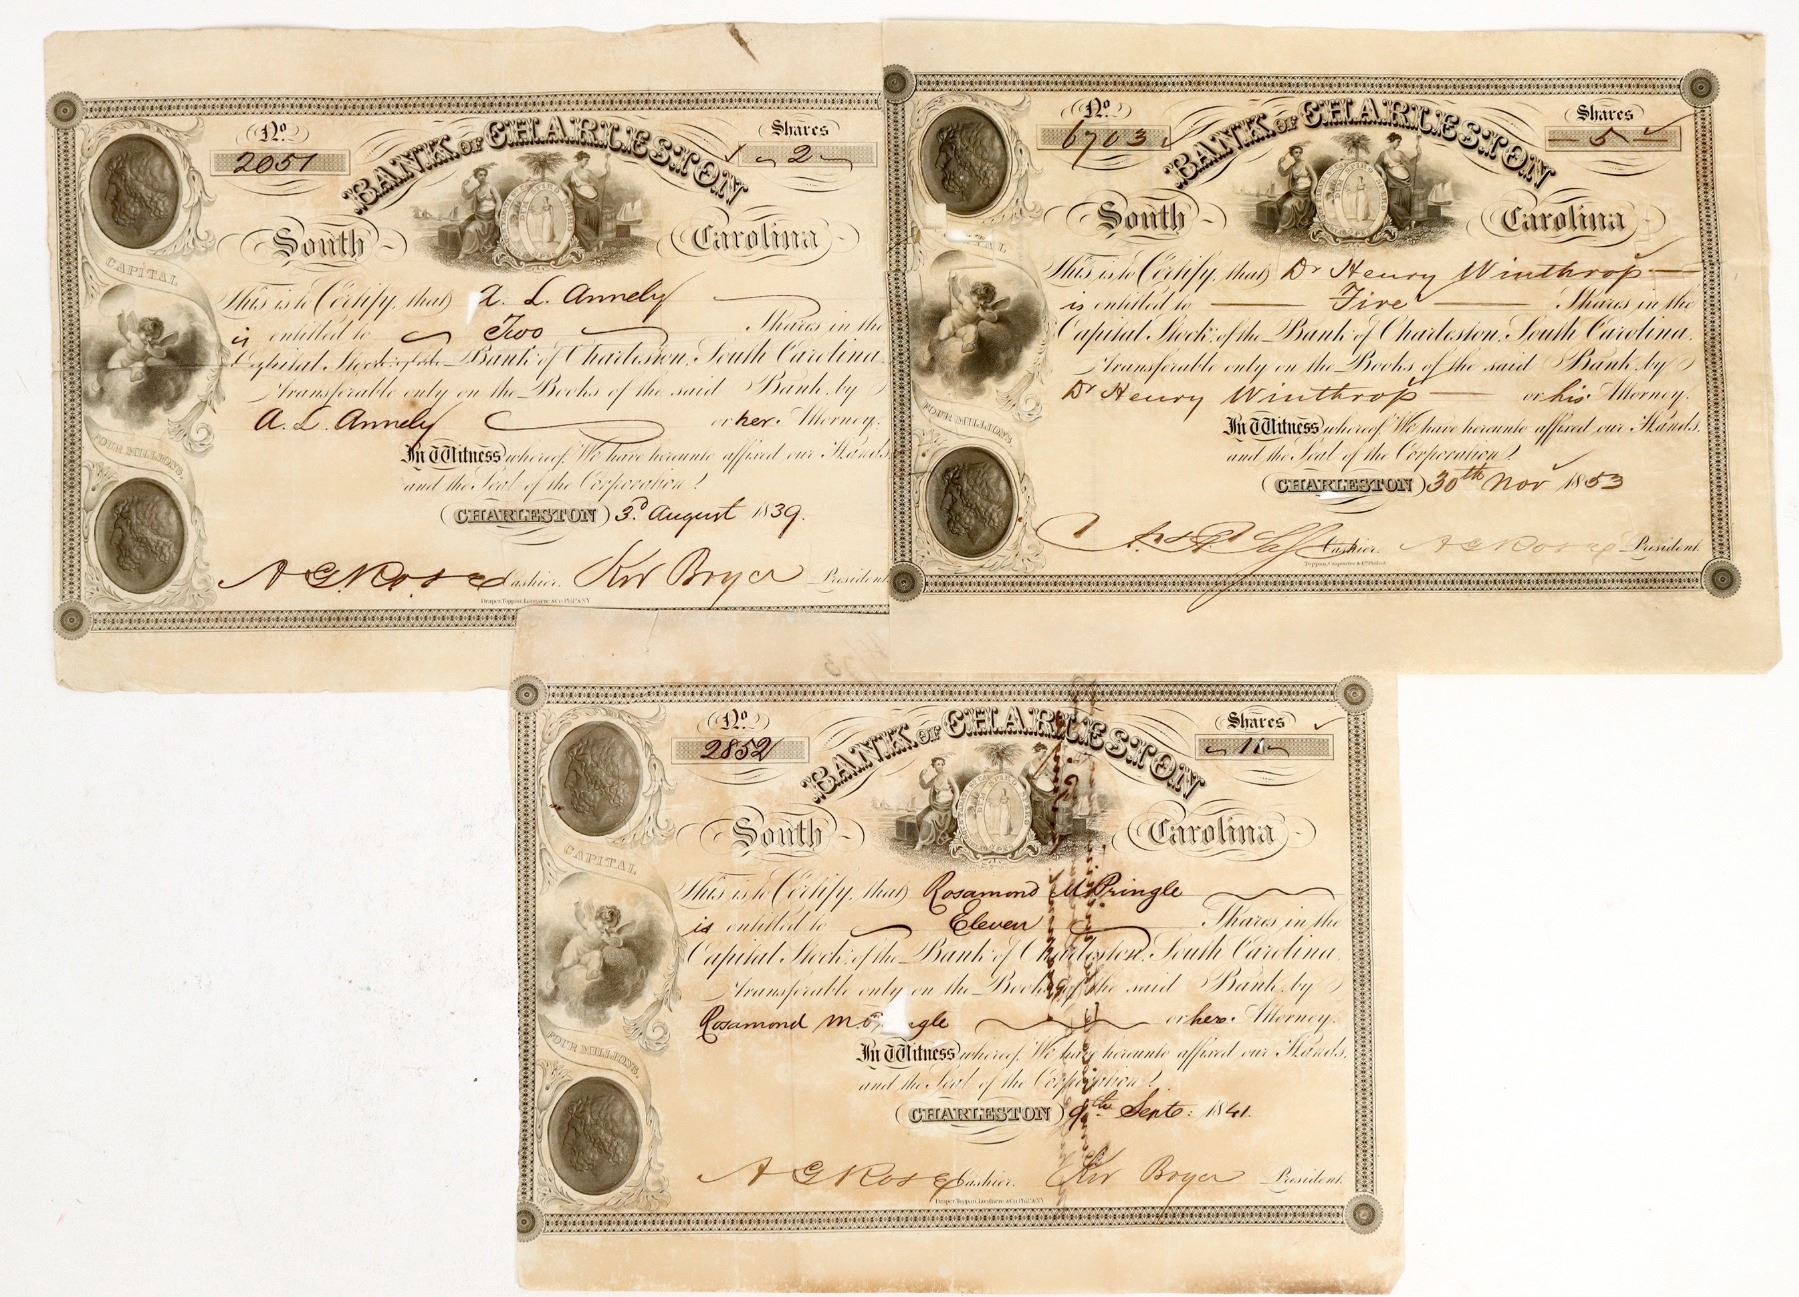 No.
2051
BANK OF CHARLESTON
Shares
2
South Carolina
CAPITAL
FOUR MILLIONS.
This is to Certify, that A. L. Annely
is entitled to Two Shares in the
Capital Stock of the Bank of Charleston, South Carolina
Transferable only on the Books of the said Bank, by
A. L. Annely or her Attorney.
In Witness whereof We have hereunto affixed our Hands
and the Seal of the Corporation
CHARLESTON 3d. August 1839.
A G Rose Cashier. Ker Boyce President
Draper, Toppan, Longacre & Co. Phila. & N.Y.
No.
6703
BANK OF CHARLESTON
Shares
5
South Carolina
FOUR MILLIONS.
This is to Certify, that Dr Henry Winthrop
is entitled to Five Shares in the
Capital Stock of the Bank of Charleston, South Carolina.
Transferable only on the Books of the said Bank, by
Dr Henry Winthrop or his Attorney.
In Witness whereof We have hereunto affixed our Hands.
and the Seal of the Corporation
CHARLESTON 30th Nov 1853
Cashier. A G Rose President.
Toppan, Carpenter & Co. Phila.
No.
2852
BANK OF CHARLESTON
Shares
11
South Carolina
CAPITAL
FOUR MILLIONS.
This is to Certify, that Rosamond M Pringle
is entitled to Eleven Shares in the
Capital Stock of the Bank of Charleston, South Carolina.
Transferable only on the Books of the said Bank, by
Rosamond M. Pringle or her Attorney.
In Witness whereof We have hereunto affixed our Hands.
and the Seal of the Corporation
CHARLESTON 9th Sept: 1841.
A G Rose Cashier. Ker Boyce President.
Draper, Toppan, Longacre & Co. Phila. & N.Y.